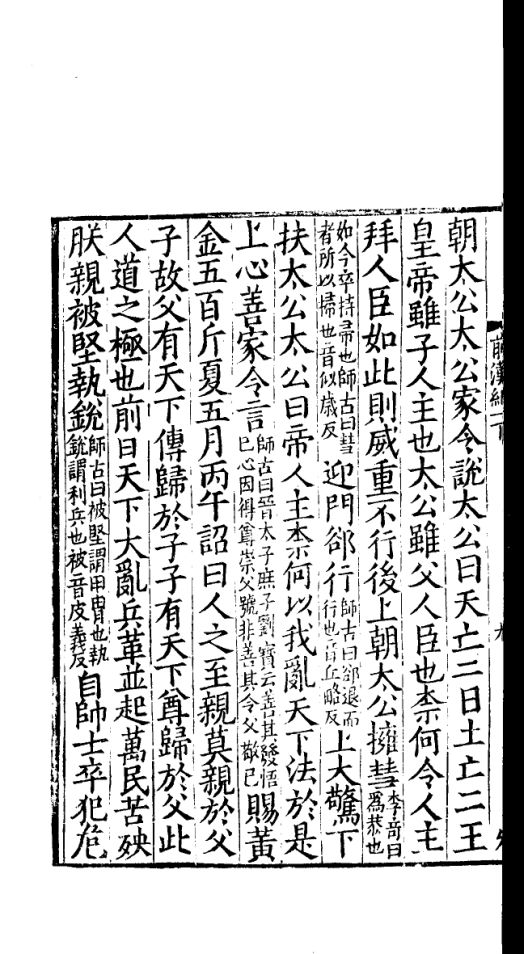 朝太公太公家令說太公曰天亡二日土亡二王
皇帝雖子人主也太公雖父人臣也柰何令人主
拜人臣如此則威重不行後上朝太公擁彗李奇曰爲恭也
如今卒持帚也師古曰彗者所以掃也音似歲反迎門郤行師古曰郤退而行也音丘略反上大驚下
扶太公太公曰帝人主柰何以我亂天下法於是
上心善家令言師古曰晉太子庶子劉寶云善其發悟己心因得尊崇父號非善其令父敬己賜黃
金五百斤夏五月丙午詔曰人之至親莫親於父
子故父有天下傳歸於子子有天下尊歸於父此
人道之極也前日天下大亂兵革並起萬民苦殃
朕親被堅執銳師古曰被堅謂甲冑也執銳謂利兵也被音皮義反自帥士卒犯危